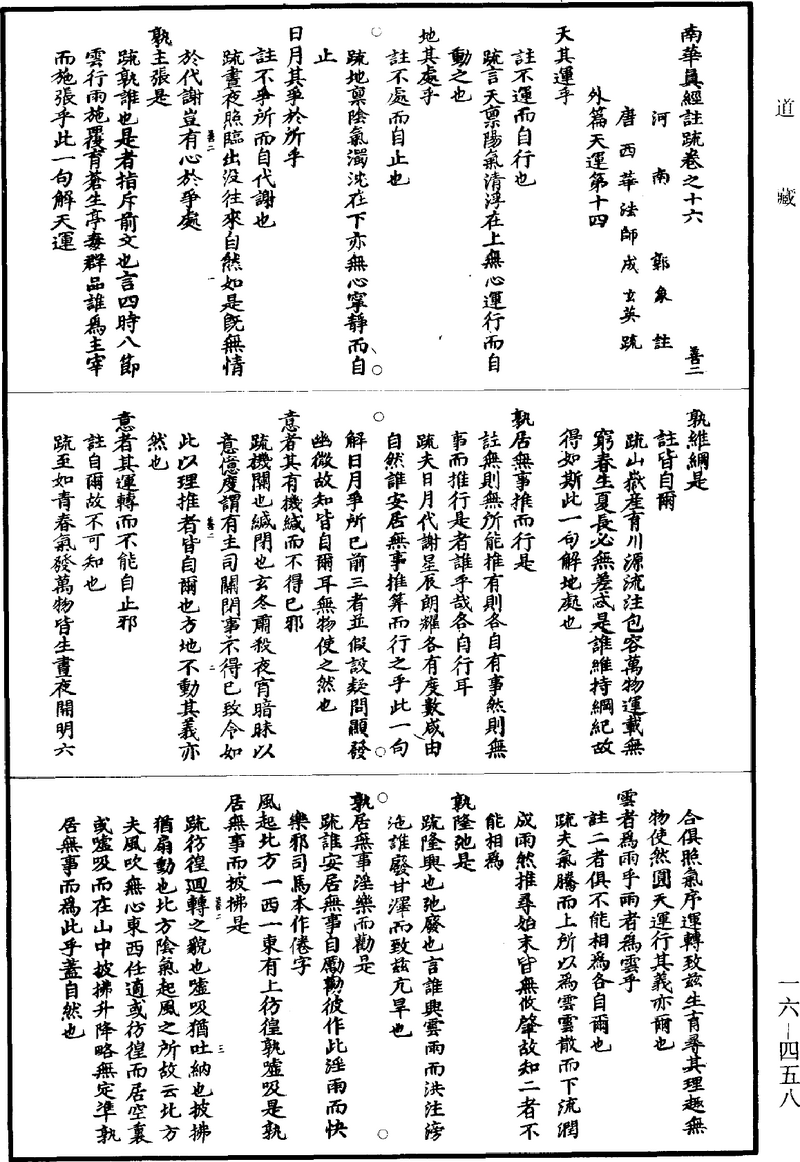 道藏
南華真經註疏卷之十六
善二
河南郭象註
唐西華法師成玄英疏
外篇天運第十四
天其運乎
註不運而自行也
疏言天稟陽氣清浮在上無心運行而自
動之也
地其處乎
註不處而自止也
疏地稟陰氣濁沈在下亦無心寧靜而自
止
日月其爭於所乎
註不爭所而自代謝也
疏晝夜照臨出沒往來自然如是既無情
於代謝豈有心於爭處
孰主張是
疏孰誰也是者指斥前文也言四時八節
雲行雨施覆育蒼生亭毒群品誰為主宰
而施張乎此一句解天運
孰維綱是
註皆自爾
疏山嶽產育川源流注包容萬物運載無
窮春生夏長必無差忒是誰維持綱紀故
得如斯此一句解地處也
孰居無事推而行是
註無則無所能推有則各自有事然則無
事而推行是者誰乎哉各自行耳
疏夫日月代謝星辰朗耀各有度數咸由
自然誰安居無事推筭而行之乎此一句
解日月爭所已前三者並假設疑問顯發
幽微故知皆自爾耳無物使之然也
意者其有機緘而不得已邪
疏機關也緘閉也玄冬肅殺夜宵暗昧以
意億度謂有主司關閉事不得已致令如
此以理推者皆自爾也方地不動其義亦
然也
意者其運轉而不能自止邪
註自爾故不可知也
疏至如青春氣發萬物皆生晝夜開明六
合俱照氣序運轉致茲生育尋其理趣無
物使然圓天運行其義亦爾也
雲者為雨乎雨者為雲乎
註二者俱不能相為各自爾也
疏夫氣騰而上所以為雲雲散而下流潤
成雨然推尋始末皆無攸肇故知二者不
能相為
孰隆弛是
疏隆興也弛廢也言誰興雲雨而洪注滂
沲誰廢甘澤而致茲亢旱也
孰居無事淫樂而勸是
疏誰安居無事自勵勸彼作此淫雨而快
樂邪司馬本作倦字
風起北方一西一東有上彷徨孰噓吸是孰
居無事而披拂是
疏彷徨迴轉之貌也噓吸猶吐納也披拂
猶扇動也北方陰氣起風之所故云北方
夫風吹無心東西任適或彷徨而居空裏
或噓吸而在山中披拂升降略無定準孰
居無事而為此乎蓋自然也
一六—四五八